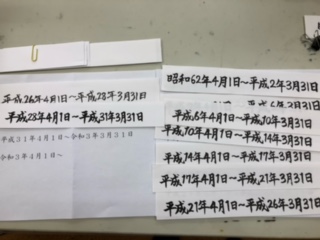 昭和62年4月1日〜平成2年3月31日
平成8年4月1日〜平成10年3月31日
平成10年4月1日〜平成14年3月31日
平成14年4月1日〜平成17年3月31日
平成17年4月1日〜平成21年3月31日
平成21年4月1日〜平成26年3月31日
平成26年4月1日〜平成28年3月31日
平成28年4月1日〜平成31年3月31日
平成31年4月1日〜令和3年3月31日
令和3年4月1日〜